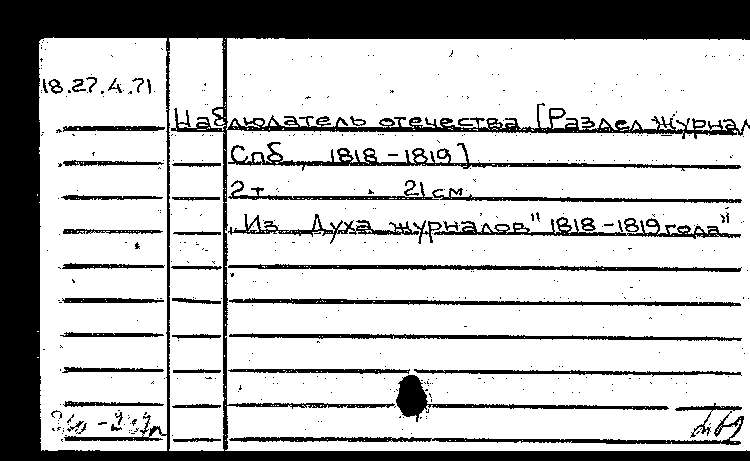 18.27.4.71
Наблюдатель отечества [Раздел журнал
Спб 1818-1819]
2 т. 21 см.
„Из Духа журналов" 1818-1819 года"